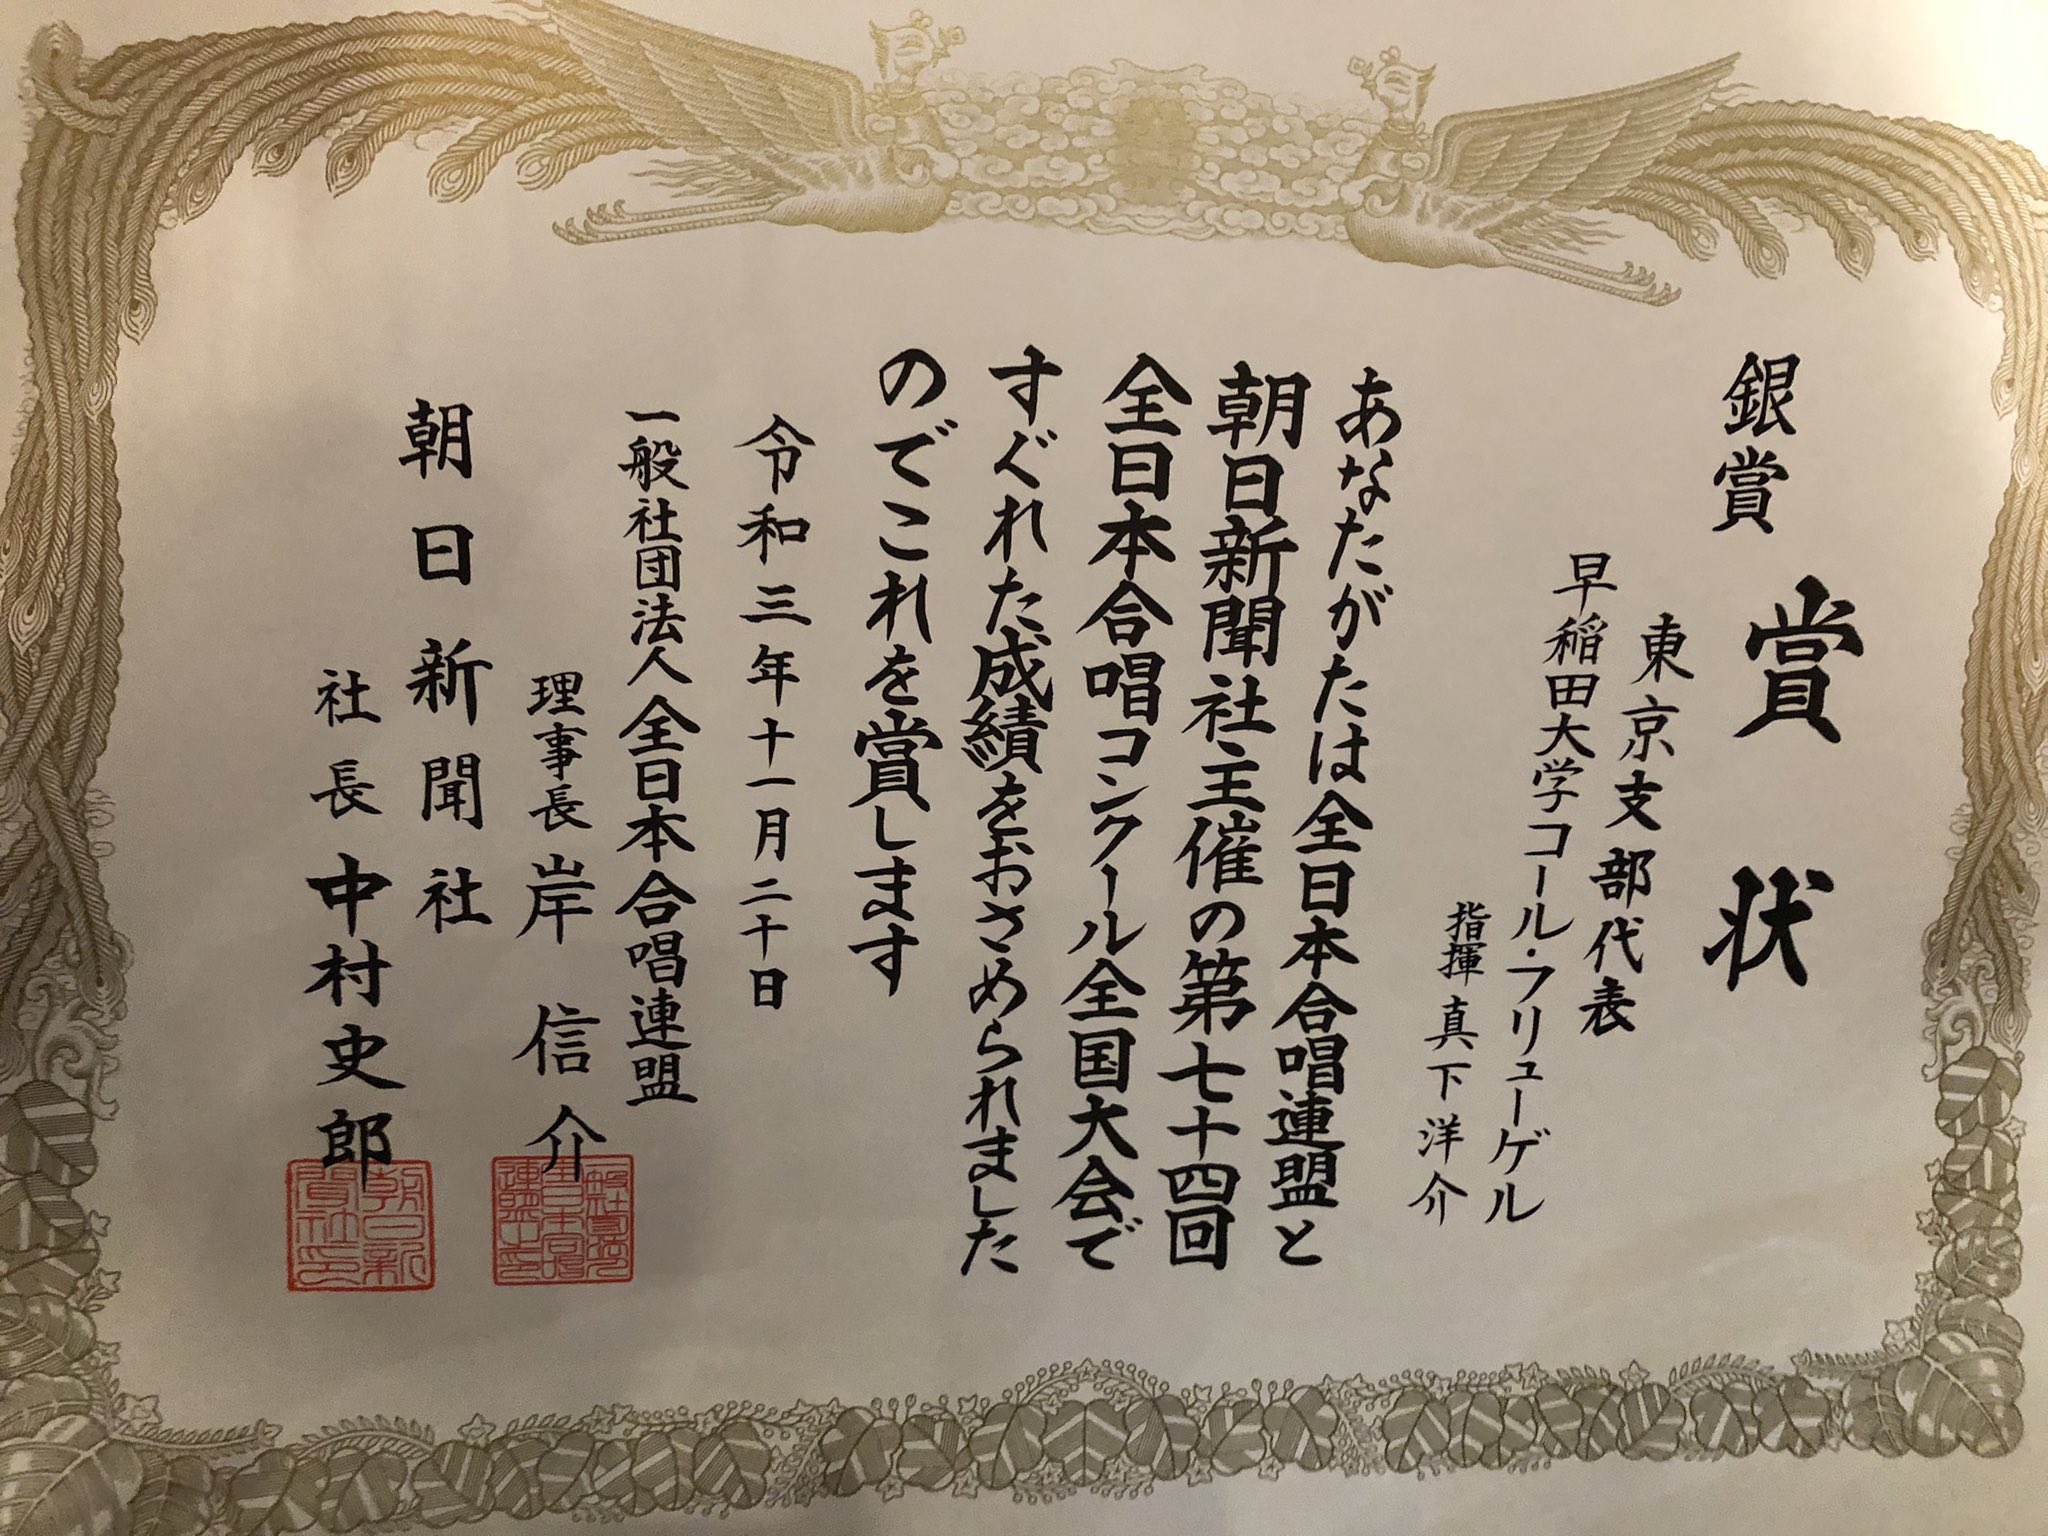 銀賞
賞状
東京支部代表
早稲田大学コール・フリューゲル
指揮 真下洋介
あなたがたは全日本合唱連盟と
朝日新聞社主催の第七十四回
全日本合唱コンクール全国大会で
すぐれた成績をおさめられました
のでこれを賞します
令和三年十一月二十日
一般社団法人全日本合唱連盟
理事長 岸信介
朝日新聞社
社長 中村史郎